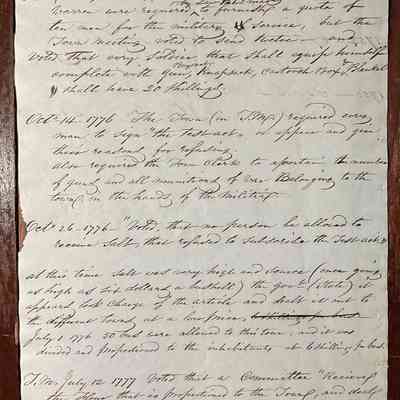 Warren were required to furnish a quota of
ten men for the military service, but the
Town Meeting voted to send twelve and
Voted that every Soldier that shall equip himself
complete with Gun, Bayonet, Knapsack, Cartouch Box & Blanket
shall have 20 shillings.
Octr 14. 1776 The Town (in T. M.) required every
man to sign "the test act, or appear and give
their reasons for refusing.
also required the Town Clerk to the number
of guns and all munitions of war Belonging to the
town in the hands of the Militia.
Octr 26. 1776 "Voted, that no person be allowed to
receive Salt, that refused to subscribe the Test act."
at this time Salt was very high and scarce (once going
as high as six dollars a bushell) the govt (State) it
appears took Charge of the article and dealt it out to
the different towns at a low price, 6 shillings pr bus.
July 1 1776 50 bus were allowed to this town, and it was
divided and proportioned to the inhabitants at 6 shilling pr bus.
T. M. July 12 1777 Voted that a Committee "Receive
the that is proportioned to the Town, and deal